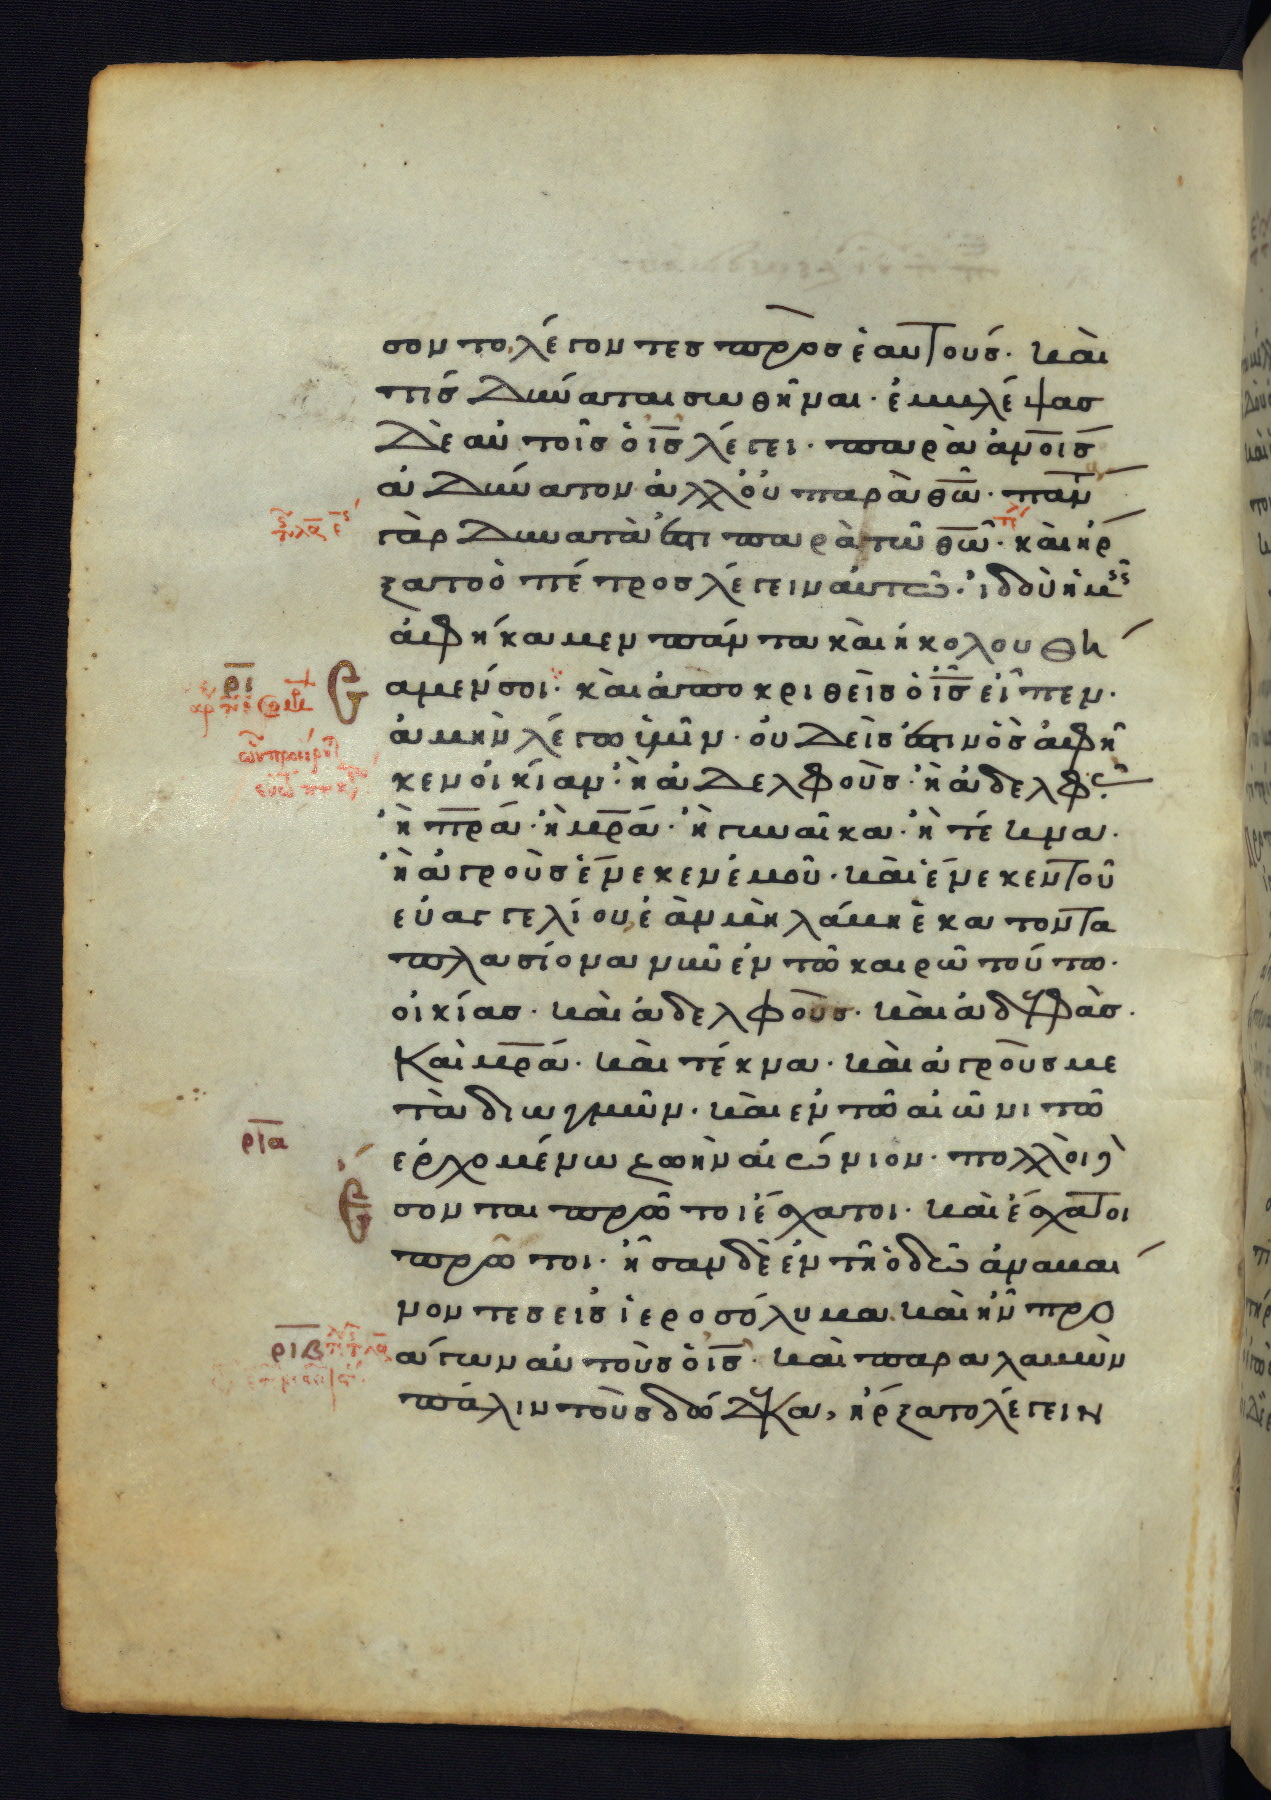 σοντο λέγοντες πρὸς ἑαυτούς· καὶ
τίς δύναται σωθῆναι· ἐμβλέψας
δὲ αὐτοῖς ὁ ις λέγει· παρὰ ανοις
ἀδύνατον ἀλλ' οὐ παρὰ θω· πάν
γὰρ δυνατὰ ἐστι παρὰ τῶ θω· καὶ ἤρ
ξατο ὁ πέτρος λέγειν αὐτῶ· ἰδοὺ ἡμεῖς
ἀφήκαμεν πάντα καὶ ἠκολουθή
ρι
σαμέν σοι· καὶ ἀποκριθεὶς ὁ ις εἶπεν·
ἀμὴν λέγω ὑμῖν· οὐδείς ἐστιν ὃς ἀφῆ
κεν οἰκίαν· ἢ ἀδελφοὺς· ἢ ἀδελφὰς·
ἢ πρα· ἢ μρα· ἢ γυναῖκα· ἢ τέκνα·
ἢ ἀγροὺς ἕνεκεν ἐμοῦ· καὶ ἕνεκεν τοῦ
εὐαγγελίου, ἐὰν μὴ λάβη ἑκατοντα
πλασίονα νῦν ἐν τῶ καιρῶ τούτω·
οἰκίας· καὶ ἀδελφοὺς· καὶ ἀδελφὰς·
καὶ μρα· καὶ τέκνα· καὶ ἀγροὺς με
τὰ διωγμῶν· καὶ ἐν τῶ αἰῶνι τῶ
ρια
ἐρχομένω ζωὴν αἰώνιον· πολλοὶ
ἔσονται πρῶτοι ἔσχατοι· καὶ ἔσχατοι
πρῶτοι· ἦσαν δὲ ἐν τῆ ὁδῶ ἀναβαί
νοντες εἰς ἱεροσόλυμα καὶ ἦν προ
ριβ
άγων αὐτοὺς ὁ ις· καὶ παραλαβὼν
πάλιν τοὺς δώδεκα, ἤρξατο λέγειν